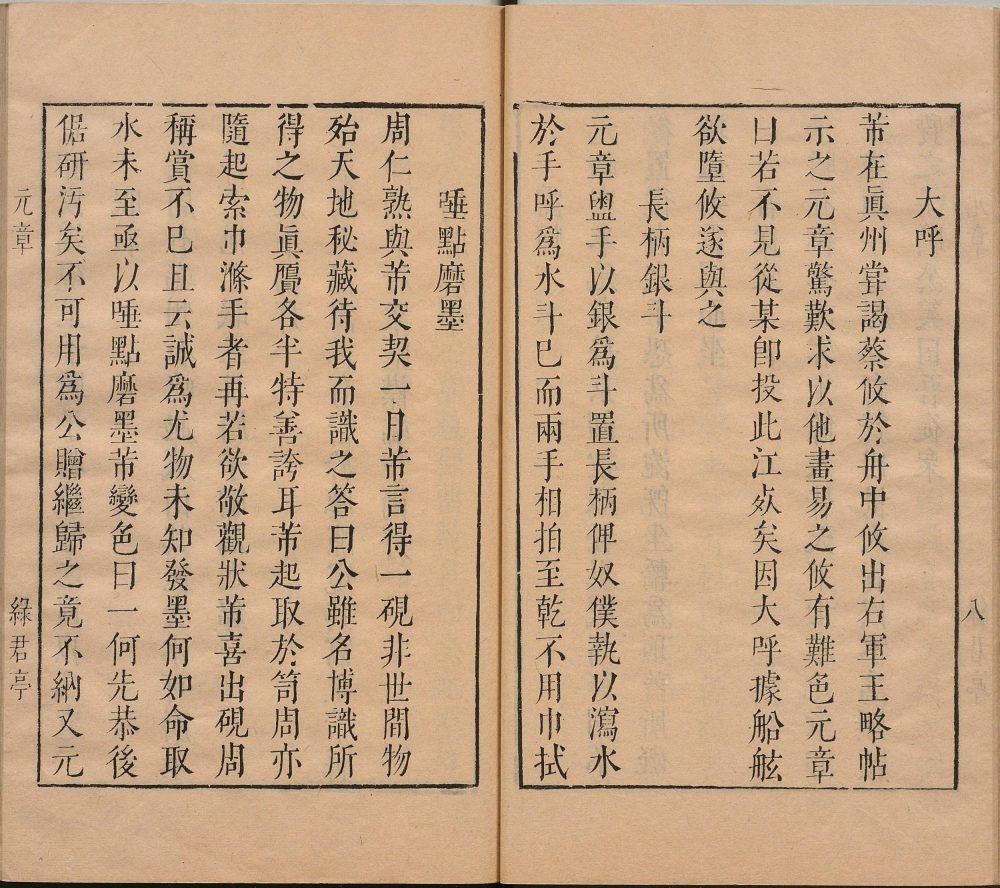 大呼
芾在眞州甞謁蔡攸於舟中攸出右軍王略帖
示之元章驚歎求以他畫易之攸有難色元章
曰若不見從某卽投此江歿矣因大呼據船舷
欲墮攸遂與之
長柄銀斗
元章盥手以銀爲斗置長柄俾奴僕執以瀉水
於手呼爲水斗已而兩手相拍至乾不用巾拭
八
唾點磨墨
周仁熟與芾交契一日芾言得一硯非世間物
殆天地秘藏待我而識之答曰公雖名博識所
得之物眞贋各半特善誇耳芾起取於笥周亦
隨起索巾滌手者再若欲敬觀狀芾喜出硯周
稱賞不已且云誠爲尤物未知發墨何如命取
水未至亟以唾點磨墨芾變色曰一何先恭後
倨研汚矣不可用爲公贈繼歸之竟不納又元
元章
綠君亭